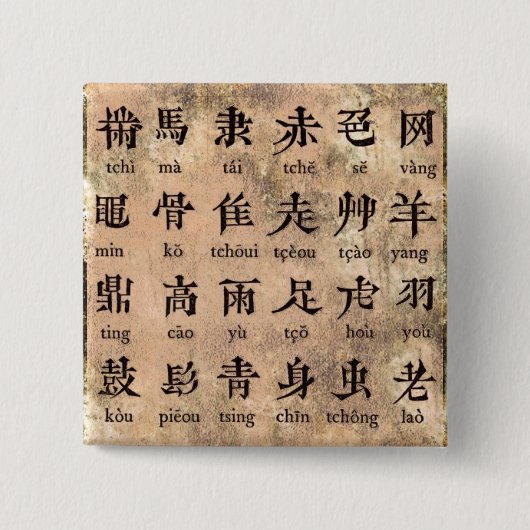 黹 馬 隶 赤 色 网
tchì mà tái tchĕ sĕ vàng
黽 骨 隹 走 艸 羊
min kŏ tchōui tçèou tçào yang
鼎 高 雨 足 虍 羽
ting cāo yù tçŏ hoù yoù
鼓 髟 青 身 虫 老
kòu piēou tsing chīn tchông laò